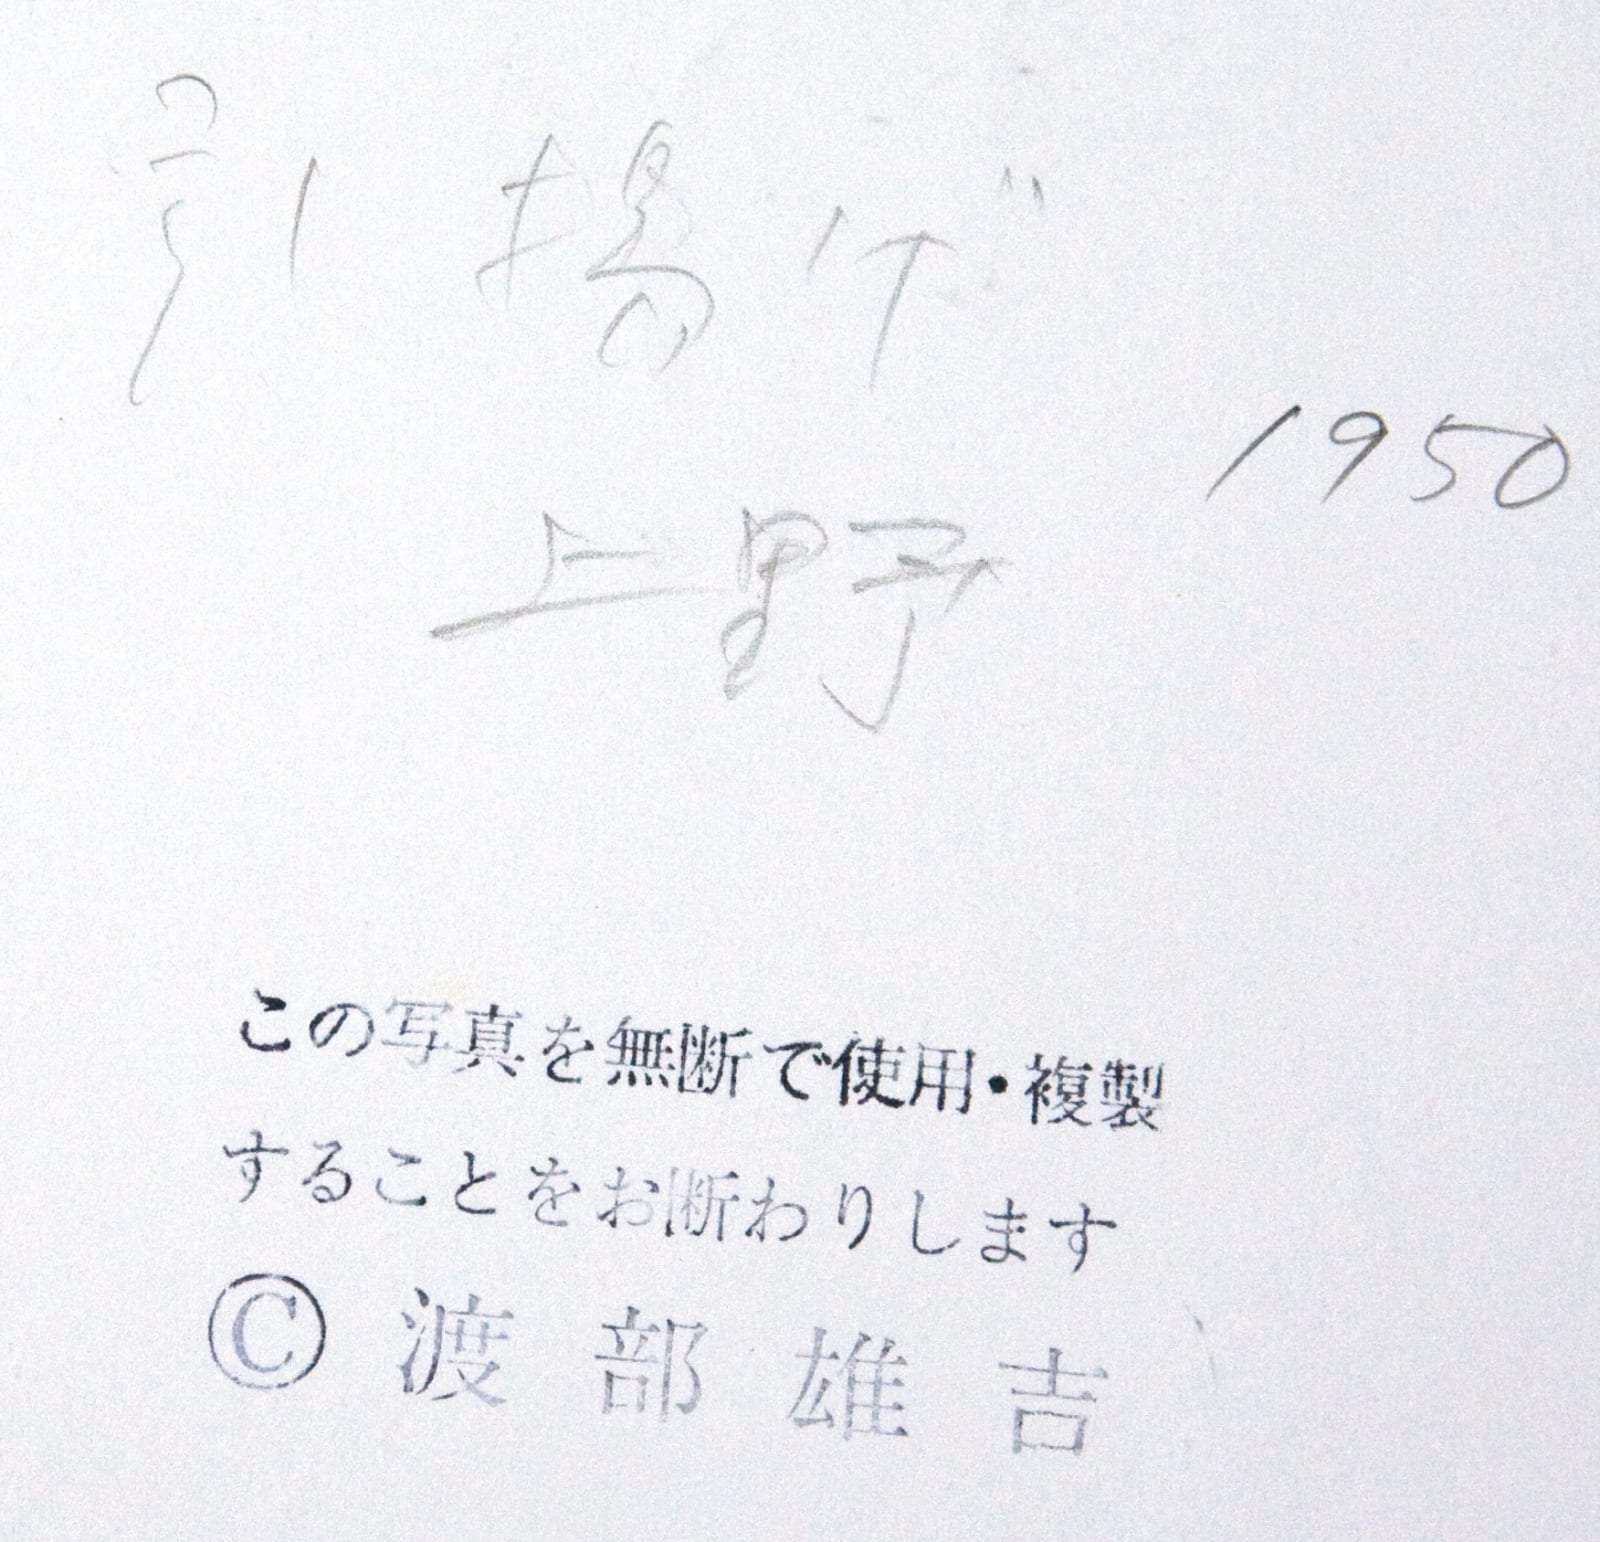 引揚げ
1950
上野
この写真を無断で使用・複製
することをお断わりします
©渡部雄吉